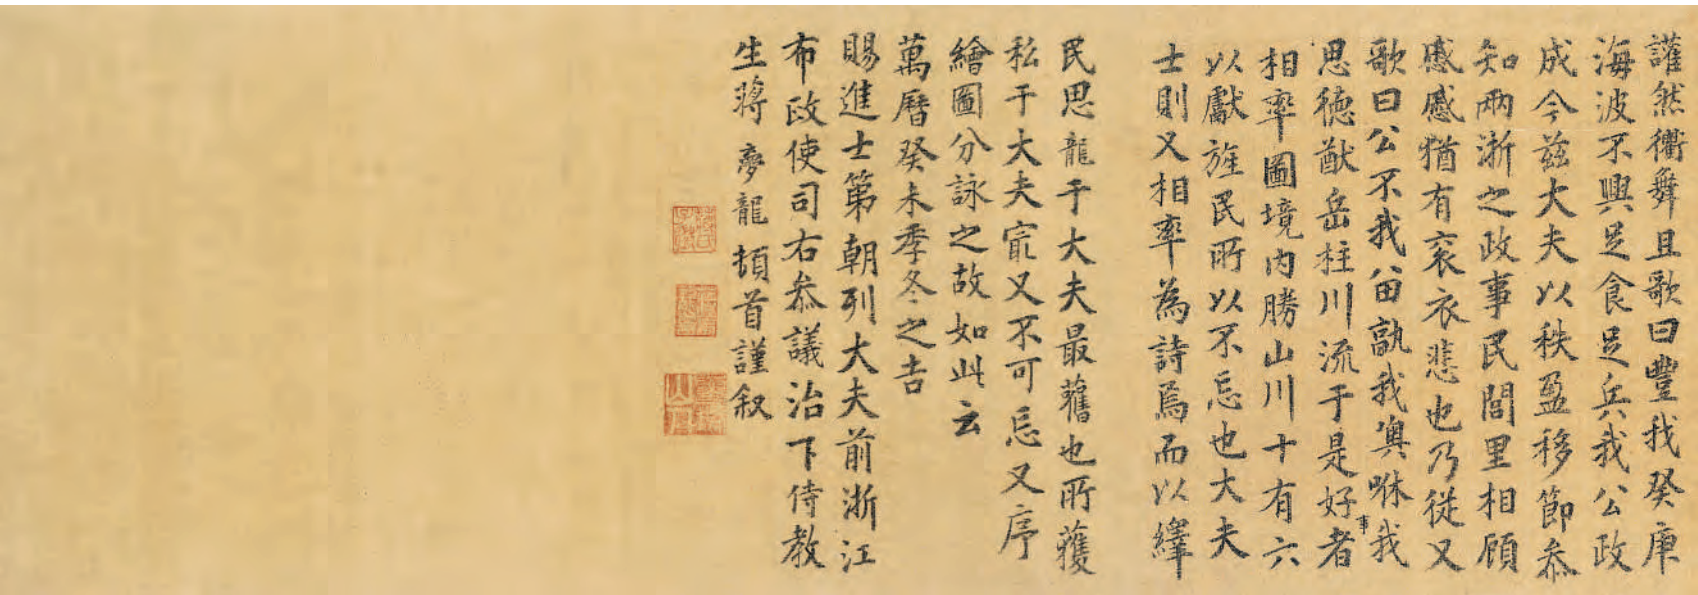 讙然衢舞且歌曰豐我癸庚
海波不興足食足兵我公政
成今茲大夫以秩盈移節叅
知兩浙之政事民閭里相顧
慼慼猶有衮衣悲也乃從又
歌曰公不我畱孰我噢咻我
思德猷岳柱川流于是好事者
相率圖境内勝山川十有六
以獻旌民所以不忘也大夫
士則又相率為詩焉而以繹
民思龍于大夫最舊也所獲
私于大夫寔又不可忘又序
繪圖分詠之故如此云
萬曆癸未季冬之吉
賜進士第朝列大夫前浙江
布政使司右叅議治下侍教
生蔣夢龍頓首謹叙